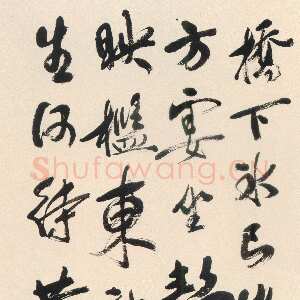 橋下冰已
方宴坐
映檻東
生何待
Shufawang.cn